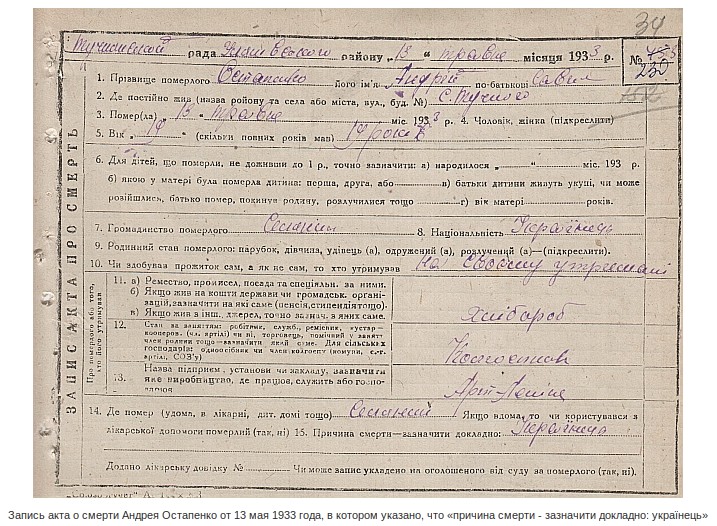 34
рада районув „13“ травня місяця 1933 р. №
230
1. Прізвище померлого Остапенко Його ім'я Андрій по-батькові
2. Де постійно жив (назва району та села або міста, вул., буд. №)
3. Помер(ла) „ 13 „ травня міс. 1933 р. 4. Чоловік, жінка (підкреслити)
5. Вік (скільки повних років мав)
6. Для дітей, що померли, не доживши до 1 р., точно зазначити: а) народилося „ “ міс. 193 р.
б) якою у матері була померла дитина: перша, друга, або в) батьки дитини живуть укупі, чи може
розійшлись, батько помер, покинув родину, розлучилися тощо г) вік матері років.
7. Громадянство померлого Селянин 8. Національність Українець
9. Родинний стан померлого: парубок, дівчина, удівець (а), одружений (а), розлучений (а)—(підкреслити).
10. Чи здобував прожиток сам, а як не сам, то хто утримував на своєму утриманні
ЗАПИС АКТА ПРО СМЕРТЬ
Про померлого або того, хто його утримував
11. а) Ремество, промисел, посада та спеціяльн. за ними.
б) Якщо жив на кошти держави чи громадськ. органі-
зацій, зазначити на які саме (пенсія, стипендія тощо).
в) Якщо жив в інш. джерел, точно зазнач. в яких саме.
Хлібороб
12. Стан за заняттям: робітник, служб., ремісник, кустар—
кооперов. (чл. артілі) чи ні, торговець, помічний у занятт.
член родини тощо—зазначити який саме. Для сільських
господарів: одноосібник чи член колгоспу (комуни, с.-г.
артілі, СОЗ'у)
13. Назва підприєм., установи чи закладу, зазначити
яке виробництво, де працював, служить або госпо-
Арт Леніна
14. Де помер (удома, в лікарні, дит. домі тощо) Селянин Якщо вдома, то чи користувався з
лікарської допомоги померлий (так, ні) 15. Причина смерти—зазначити докладно: Українець
Додано лікарську довідку № Чи може запис укладено на оголошеного від суду за померлого (так, ні).
Запись акта о смерти Андрея Остапенко от 13 мая 1933 года, в котором указано, что «причина смерти - зазначити докладно: українець»